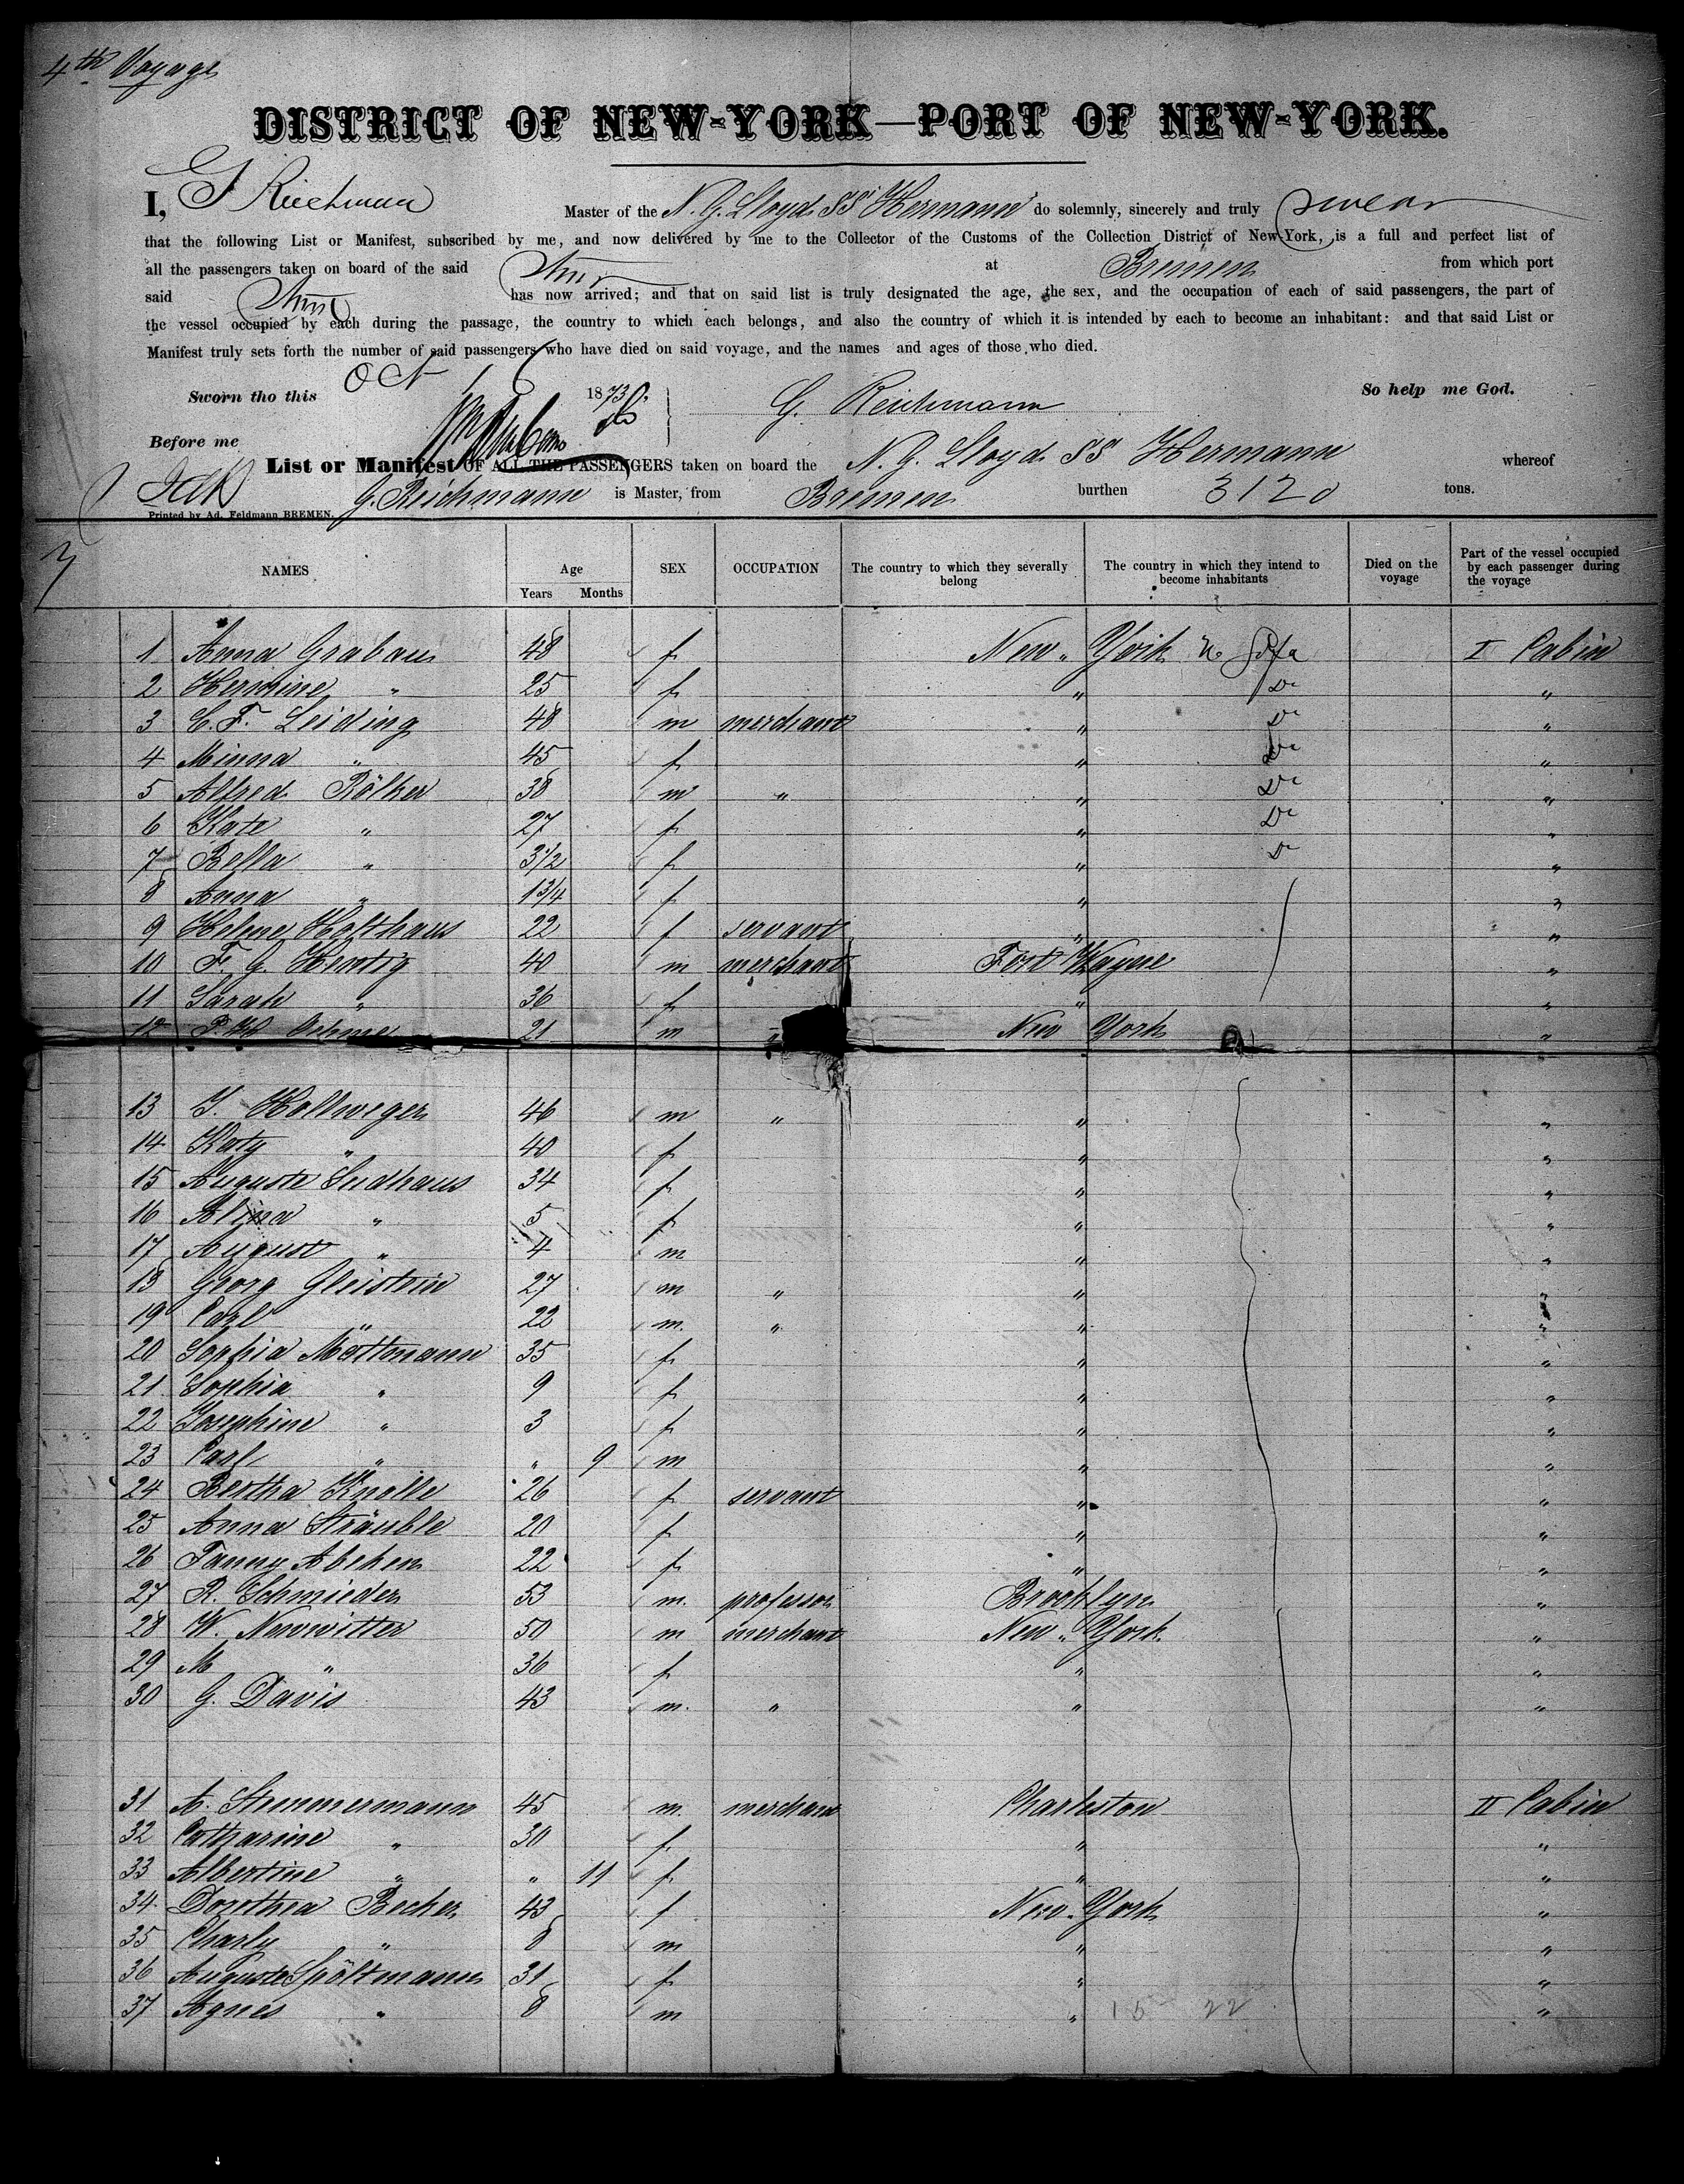 4th Voyage
DISTRICT OF NEW-YORK—PORT OF NEW-YORK.
I, G Reichmann Master of the N. G. Lloyd SS Hermann do solemnly, sincerely and truly swear
that the following List or Manifest, subscribed by me, and now delivered by me to the Collector of the Customs of the Collection District of New-York, is a full and perfect list of
all the passengers taken on board of the said Stmr at Bremen from which port
said Stmr has now arrived; and that on said list is truly designated the age, the sex, and the occupation of each of said passengers, the part of
the vessel occupied by each during the passage, the country to which each belongs, and also the country of which it is intended by each to become an inhabitant: and that said List or
Manifest truly sets forth the number of said passengers who have died on said voyage, and the names and ages of those who died.
Sworn tho this Oct 1873 G. Reichmann So help me God.
Before me
List or Manifest OF ALL THE PASSENGERS taken on board the N. G. Lloyd SS Hermann whereof
G. Reichmann is Master, from Bremen burthen 3120 tons.
Printed by Ad. Feldmann BREMEN.
NAMES Age Years Months SEX OCCUPATION The country to which they severally belong The country in which they intend to become inhabitants Died on the voyage Part of the vessel occupied by each passenger during the voyage
1 Anna Grabau 48 f New York I Cabin
2 Hermine " 25 f " Do "
3 C. F. Leiding 48 m merchant " Do "
4 Minna " 45 f " Do "
5 Alfred Rölker 38 m " " Do "
6 Kate " 27 f " Do "
7 Bella " 3 1/2 f " Do "
8 Anna " 1 3/4 f " "
9 Helene Holthaus 22 f servant " "
10 F. G. Hentig 40 m merchant Fort Wayne "
11 Sarah " 36 f " "
12 21 m " New York "
13 J. Hollweger 46 m " " "
14 Katy " 40 f " "
15 Auguste Sudhaus 34 f " "
16 " 5 f " "
17 August " 4 m " "
18 Georg Gleistein 27 m " " "
19 Carl " 22 m. " " "
20 Sophia Mettmann 35 f " "
21 Sophia " 9 f " "
22 Josephine " 3 f " "
23 Carl " " 9 m " "
24 Bertha Knolle 26 f servant " "
25 Anna Sträuble 20 f " "
26 Fanny Abeken 22 f " "
27 R. Schmieder 53 m. professor Brooklyn "
28 W. Neuwitter 50 m merchant New York "
29 M " 36 f " "
30 G. Davis 43 m. " " "
31 A. Stimmermann 45 m. merchant Charleston II Cabin
32 Catharine " 30 f. " "
33 Albertine " " 11 f " "
34 Dorothea Becker 43 f New York "
35 Charly " 8 m " "
36 Auguste Spöltmann 31 f " "
37 Agnes " 8 m " 15 22 "